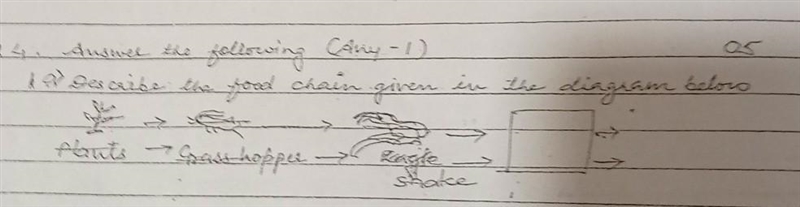 4. Answer the following (Any-1) 05
(a) Describe the food chain given in the diagram below
Plants → Grasshopper → Eagle →
snake